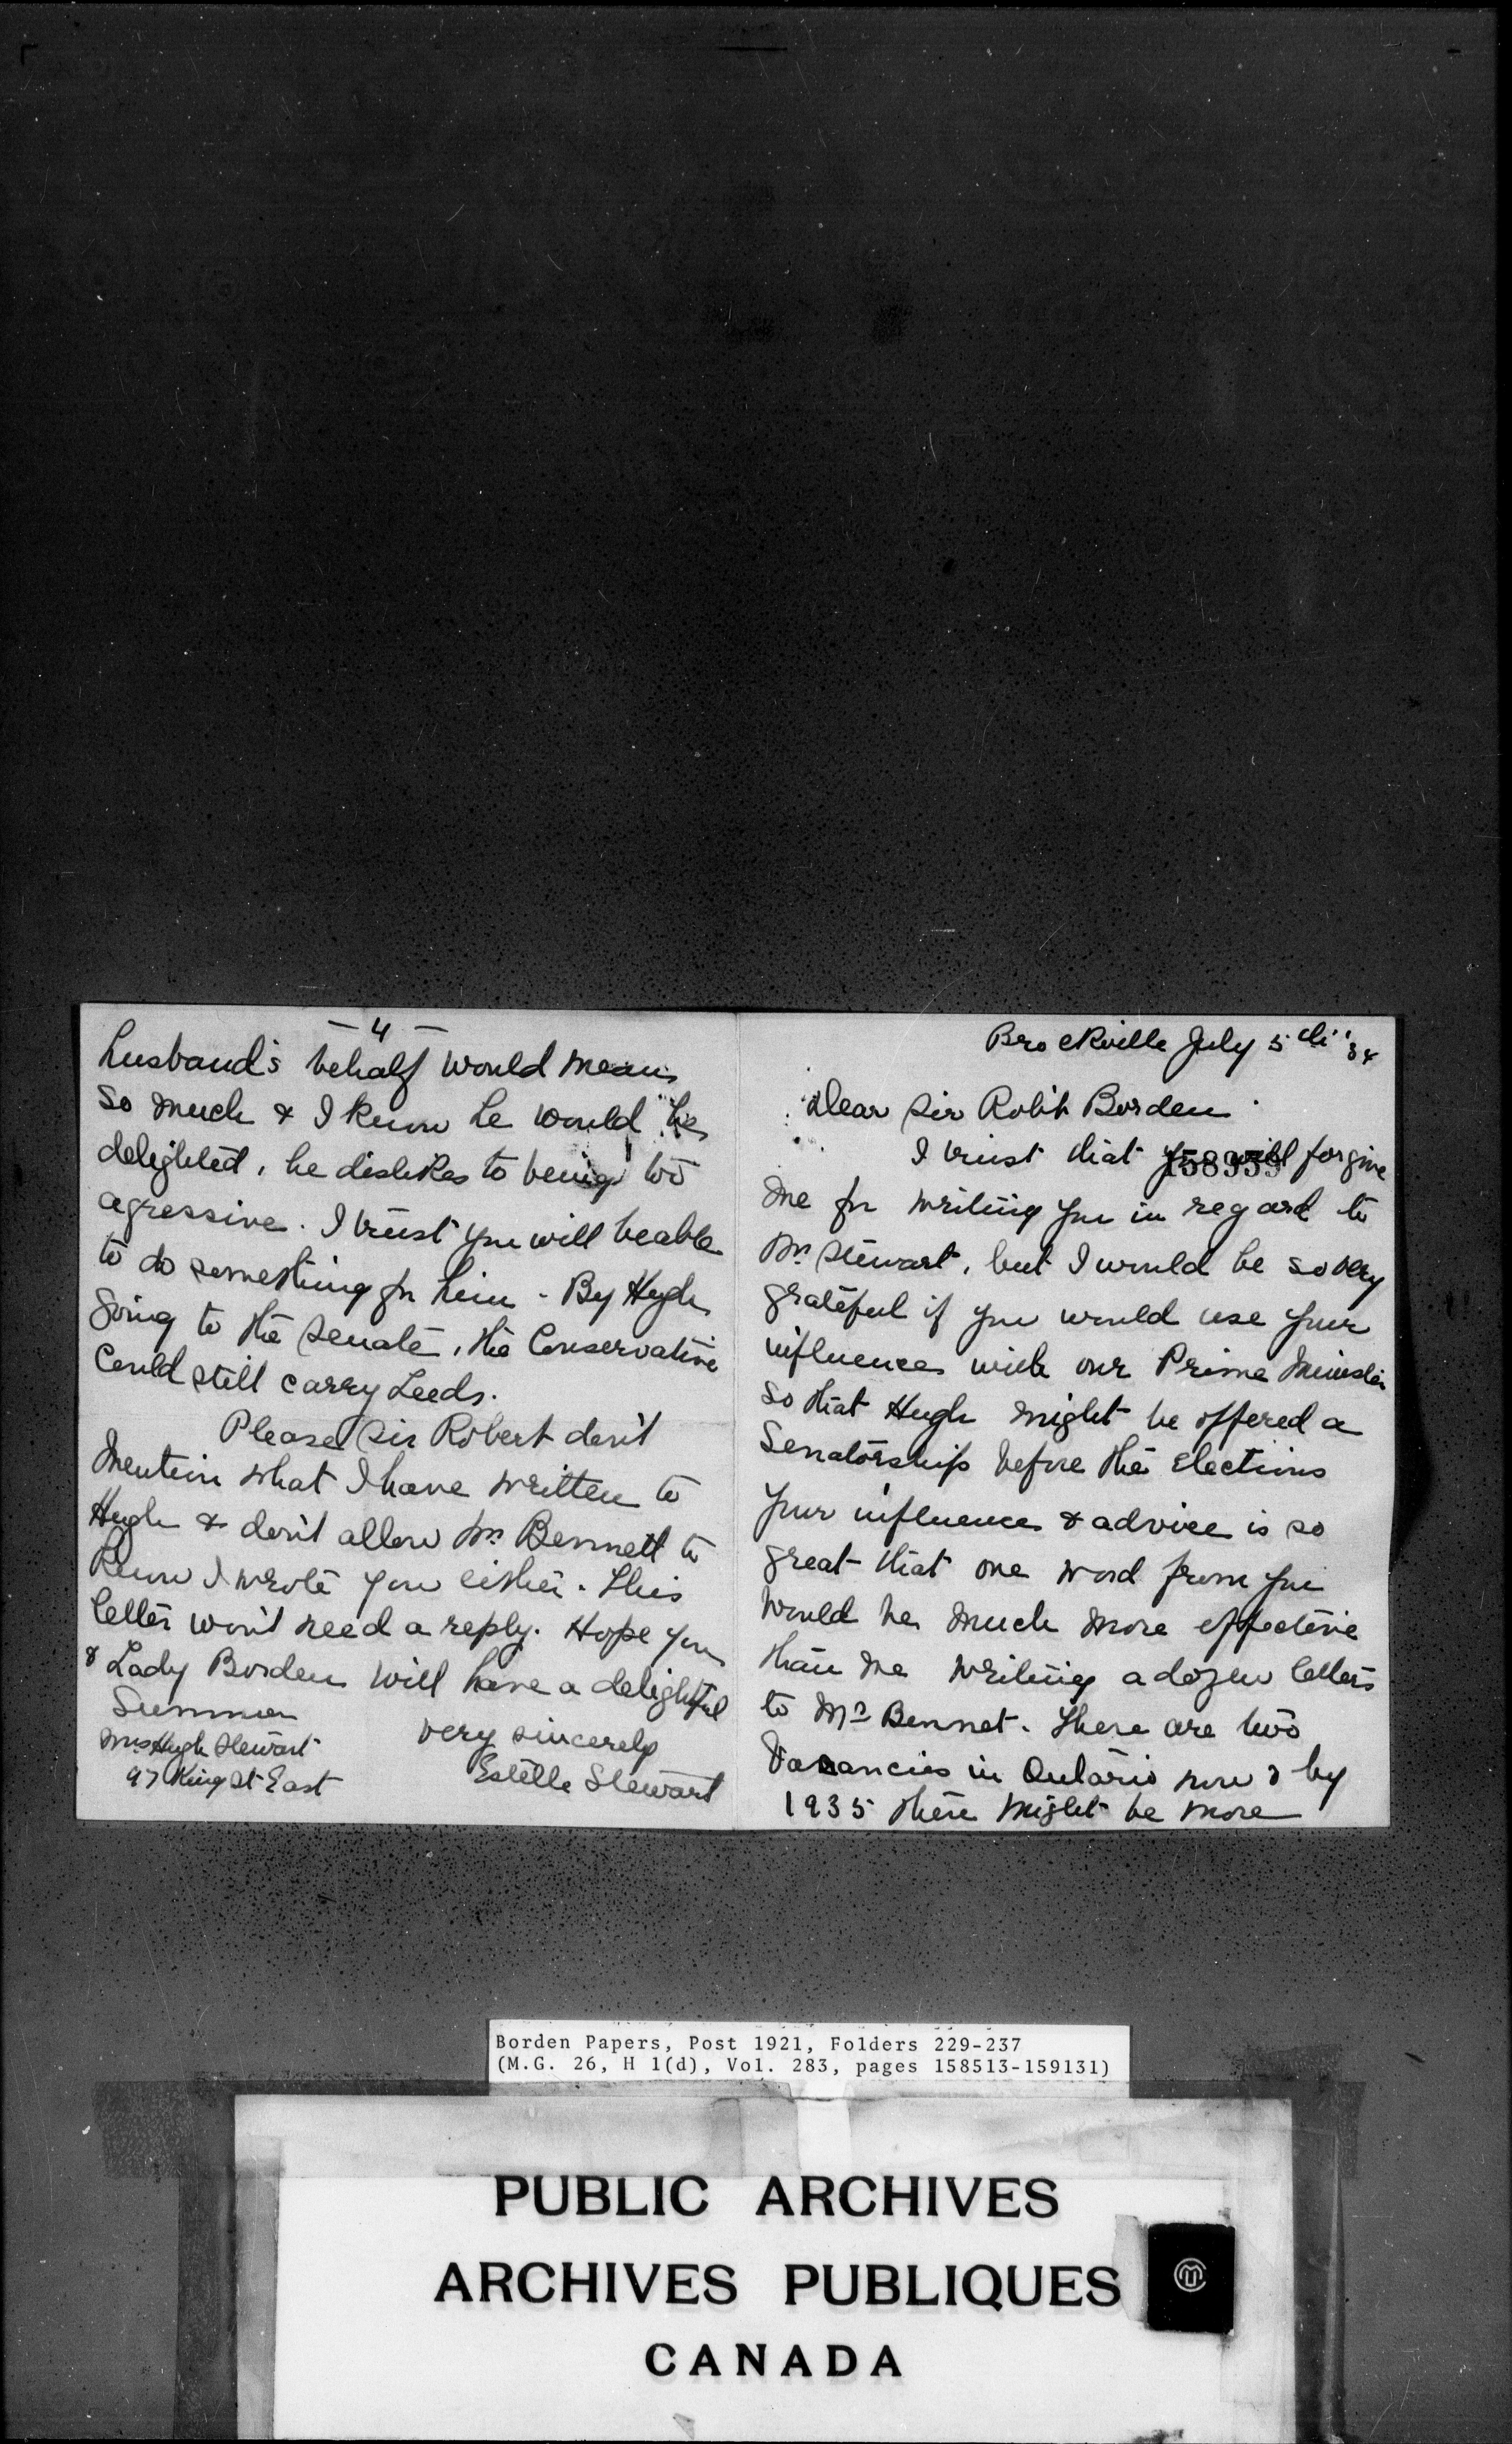 — 4 —
husband's behalf would mean
so much & I know he would be
delighted, he dislikes to being too
agressive. I trust you will be able
to do something for him - By Hugh
going to the Senate, the Conservative
Could still carry Leeds.
Please Sir Robert don't
mention what I have written to
Hugh & don't allow Mr Bennett to
know I wrote you either. This
letter won't need a reply. Hope you
& Lady Borden will have a delightful
Summer
very sincerely
Estelle Stewart
Mrs Hugh Stewart
97 King St East
Brockville July 5th '34
Dear Sir Robt Borden
I trust that you will forgive
158959
me for writing you in regard to
Mr Stewart, but I would be so very
grateful if you would use your
influence with our Prime Minister
so that Hugh might be offered a
Senatorship before the elections
your influence & advice is so
great that one word from you
would be much more effective
than me writing a dozen letters
to Mr Bennet. There are two
Vacancies in Ontario now & by
1935 there might be more
Borden Papers, Post 1921, Folders 229-237
(M.G. 26, H 1(d), Vol. 283, pages 158513-159131)
PUBLIC ARCHIVES
ARCHIVES PUBLIQUES
CANADA